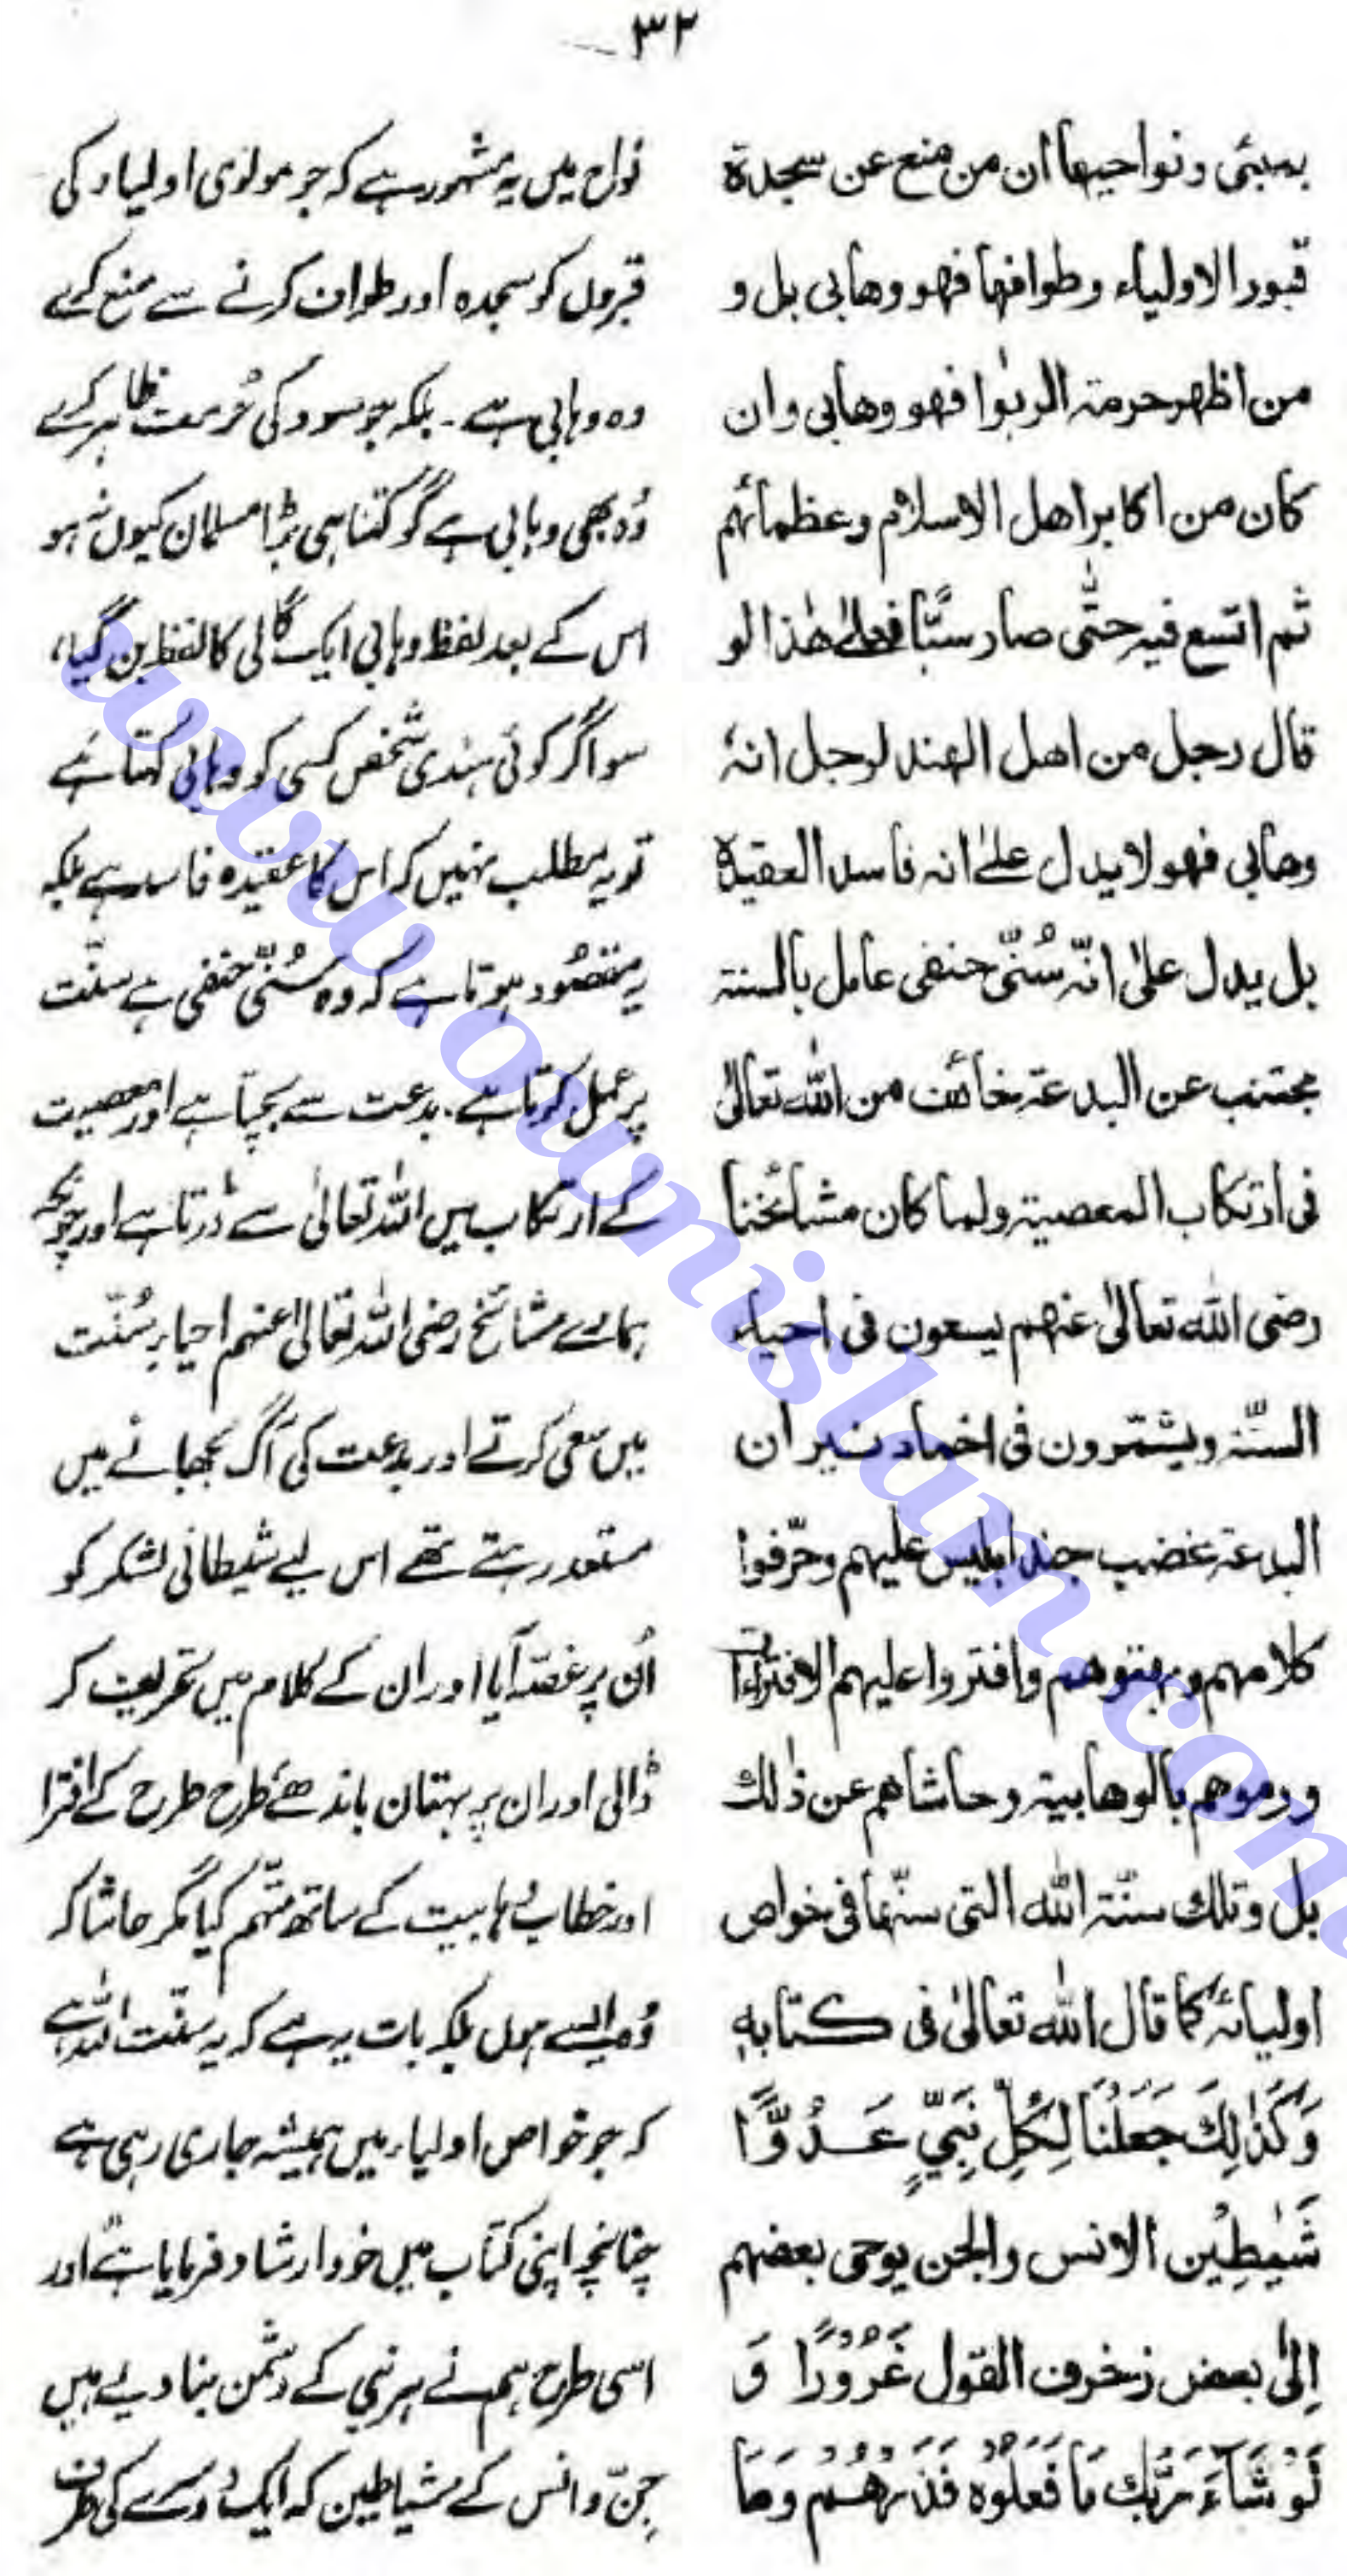 ۳۲
بمبئی ونواحیھا ان من منع عن سجدة
قبور الاولیاء وطوافھا فھو وھابی بل و
من اظھر حرمة الربٰوا فھو وھابی وان
کان من اکابر اھل الاسلام وعظمائھم
ثم اتسع فیہ حتّٰی صار سبًّا فعلیٰ ھٰذا لو
قال رجل من اھل الھند لرجل انہٗ
وھابی فھو لا یدل علیٰ انہ فاسد العقیدة
بل یدل علیٰ انّہ سُنّیّ حنفی عامل بالسنة
مجتنب عن البدعة خائف من اللّٰہ تعالیٰ
فی ارتکاب المعصیة ولما کان مشائخنا
رضی اللّٰہ تعالیٰ عنھم یسعون فی احیاء
السنّة ویشمّرون فی اخماد نیران
البدعة غضب جند ابلیس علیھم وحرّفوا
کلامھم وبھتوھم وافتروا علیھم الافتراءات
ورموھم بالوھابیة وحاشاھم عن ذٰلك
بل وتلك سنّة اللّٰہ التی سنّھا فی خواص
اولیائہٖ کما قال اللّٰہ تعالیٰ فی کتابہٖ
وَکَذٰلِكَ جَعَلْنَا لِکُلِّ نَبِیٍّ عَدُوًّا
شَیٰطِیْن الانس والجن یوحی بعضھم
اِلیٰ بعض زخرف القول غُرُوْرًا وَ
لَوْ شَآءَ رَبُّكَ مَا فَعَلُوْہ فَذَرْھُمْ وما
نواح میں یہ مشہور ہے کہ جو مولوی اولیاء کی
قبروں کو سجدہ اور طواف کرنے سے منع کرے
وہ وہابی ہے ۔ بلکہ جو سود کی حُرمت ظاہر کرے
وُہ بھی وہابی ہے گو کتنا ہی بڑا مسلمان کیوں نہ ہو
اس کے بعد لفظ وہابی ایک گالی کا لفظ بن گیا،
سو اگر کوئی ہندی شخص کسی کو وہابی کہتا ہے
تو یہ مطلب نہیں کہ اس کا عقیدہ فاسد ہے بلکہ
یہ مقصُود ہوتا ہے کہ وُہ سُنّی حنفی ہے سنّت
پر عمل کرتا ہے ۔ بدعت سے بچتا ہے اور معصیت
کے ارتکاب میں اللّٰہ تعالیٰ سے ڈرتا ہے اور چونکہ
ہمارے مشائخ رضی اللّٰہ تعالیٰ عنہم احیاءِ سُنّت
میں سعی کرتے اور بدعت کی آگ بجھانے میں
مستعد رہتے تھے اس لیے شیطانی لشکر کو
اُن پر غصّہ آیا اور ان کے کلام میں تحریف کر
ڈالی اور ان پر بہتان باندھے طرح طرح کے افترا
اور خطاب وہابیت کے ساتھ متّہم کیا مگر حاشا کہ
وُہ ایسے ہوں بلکہ بات یہ ہے کہ یہ سنّت اللّٰہ ہے
کہ جو خواص اولیاء میں ہمیشہ جاری رہی ہے
چنانچہ اپنی کتاب میں خود ارشاد فرمایا ہے اور
اسی طرح ہم نے ہر نبی کے دشمن بنا دیے ہیں
جِنّ و انس کے شیاطین کہ ایک دُوسرے کی طرف
www.ownislam.com